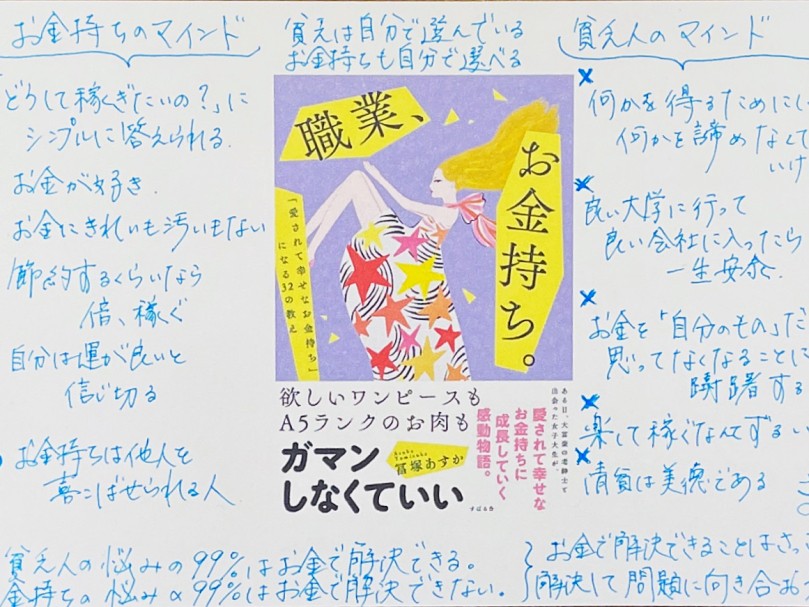 お金持ちのマインド
「どうして稼ぎたいの?」に
シンプルに答えられる.
お金が好き.
お金にきれいも汚いもない
節約するくらいなら
倍、稼ぐ
自分は運が良いと
信じ切る
お金持ちは他人を
喜こばせられる人
貧乏は自分で選んでいる
お金持ちも自分で選べる
職業、
お金持ち。
「愛されて幸せなお金持ち」
になる32の教え
欲しいワンピースも
A5ランクのお肉も
ガマン
しなくていい
冨塚あすか
Asuka Tomizuka
すばる舎
ある日、大富豪の老紳士と
出会った女子大生が、
愛されて幸せな
お金持ちに
成長していく
感動物語。
貧乏人のマインド
何かを得るためには
何かを諦めなくて
いけ
良い大学に行って
良い会社に入ったら
一生安泰.
お金を「自分のもの」だ
思ってなくなることに
躊躇する
楽して稼ぐなんてずるい
清貧は美徳である
貧乏人の悩みの99%はお金で解決できる。
金持ちの悩みの99%はお金で解決できない。
お金で解決できることはさっさ
解決して問題に向き合お